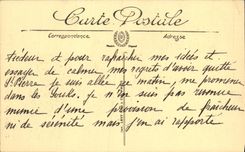 Carte Postale
Correspondance Adresse
fécheur et pour rafraîchir mes idées et
essayer de calmer mes regrets d'avoir quitté
St Pierre je suis allée ce matin, me promener
dans les Gouls. Je n'en suis pas revenue
munie d'une provision de fraîcheur
ni de sérénité mais j'en ai rapporté